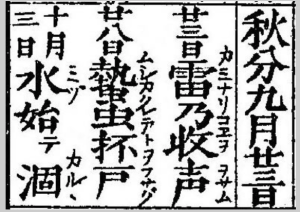 秋分九月廿三日
廿三日雷乃收声
カミナリコヱヲヲサム
廿八日蟄虫坏戸
ムシカクレテトヲフサグ
十月三日水始テ涸
ミヅ カルヽ